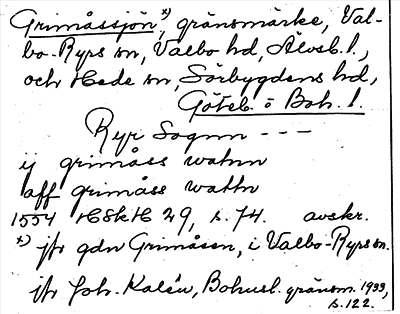 Grimåssjön x), gränsmärke, Val-
bo-Ryrs sn, Valbo hd, Älvsb. l.,
och Hede sn, Sörbygdens hd,
Göteb. o Boh. l.
Ryr Sognn - - -
ij grimåss watnn
aff grimåss wattn
1554 HSkH 29, s. 74. avskr.
x) jfr gdn Grimåsen, i Valbo-Ryrs sn.
jfr Joh. Kalén, Bohusl. gränsm. 1933,
s. 122.